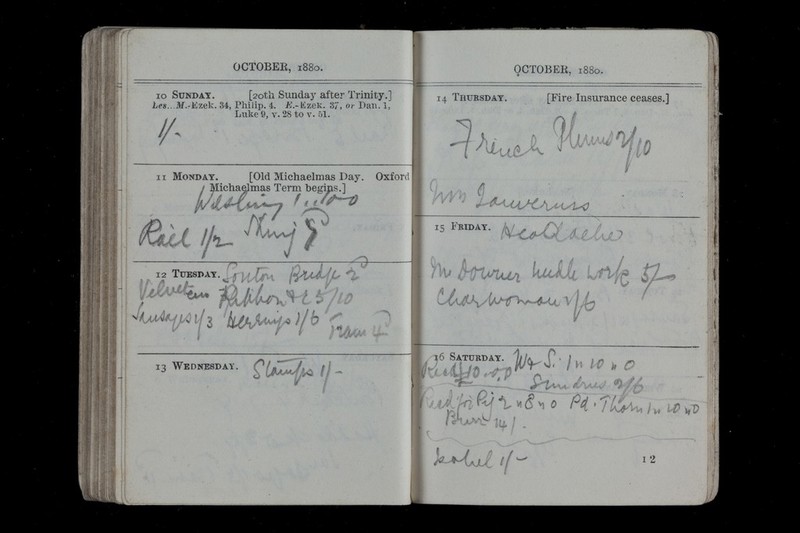 OCTOBER, 1880.
10 SUNDAY. [20th Sunday after Trinity.]
Les...M.-Ezek. 34, Philip. 4. E.-Ezek. 37, or Dan. 1,
Luke 9, v. 28 to v. 51.
1/-
11 MONDAY. [Old Michaelmas Day. Oxford
Michaelmas Term begins.]
Rail 1/2
12 TUESDAY. Bridge 2
Velveteen Ribbon 5/10
Sausages 1/3 Herrings 1/6 Tram 4
13 WEDNESDAY. Stamps 1/-
OCTOBER, 1880.
14 THURSDAY. [Fire Insurance ceases.]
French Plums 2/10
15 FRIDAY. Headache
Mrs Downer needle work 5/-
Charwoman 1/6
16 SATURDAY. W & S. 1 " 10 " 0
Recd £10.0.0
Sundries 2/6
Recd for Pig 2 " 8 " 0 Pd. Thorn 1 " 10 " 0
14/.
Isabel 1/-
I 2